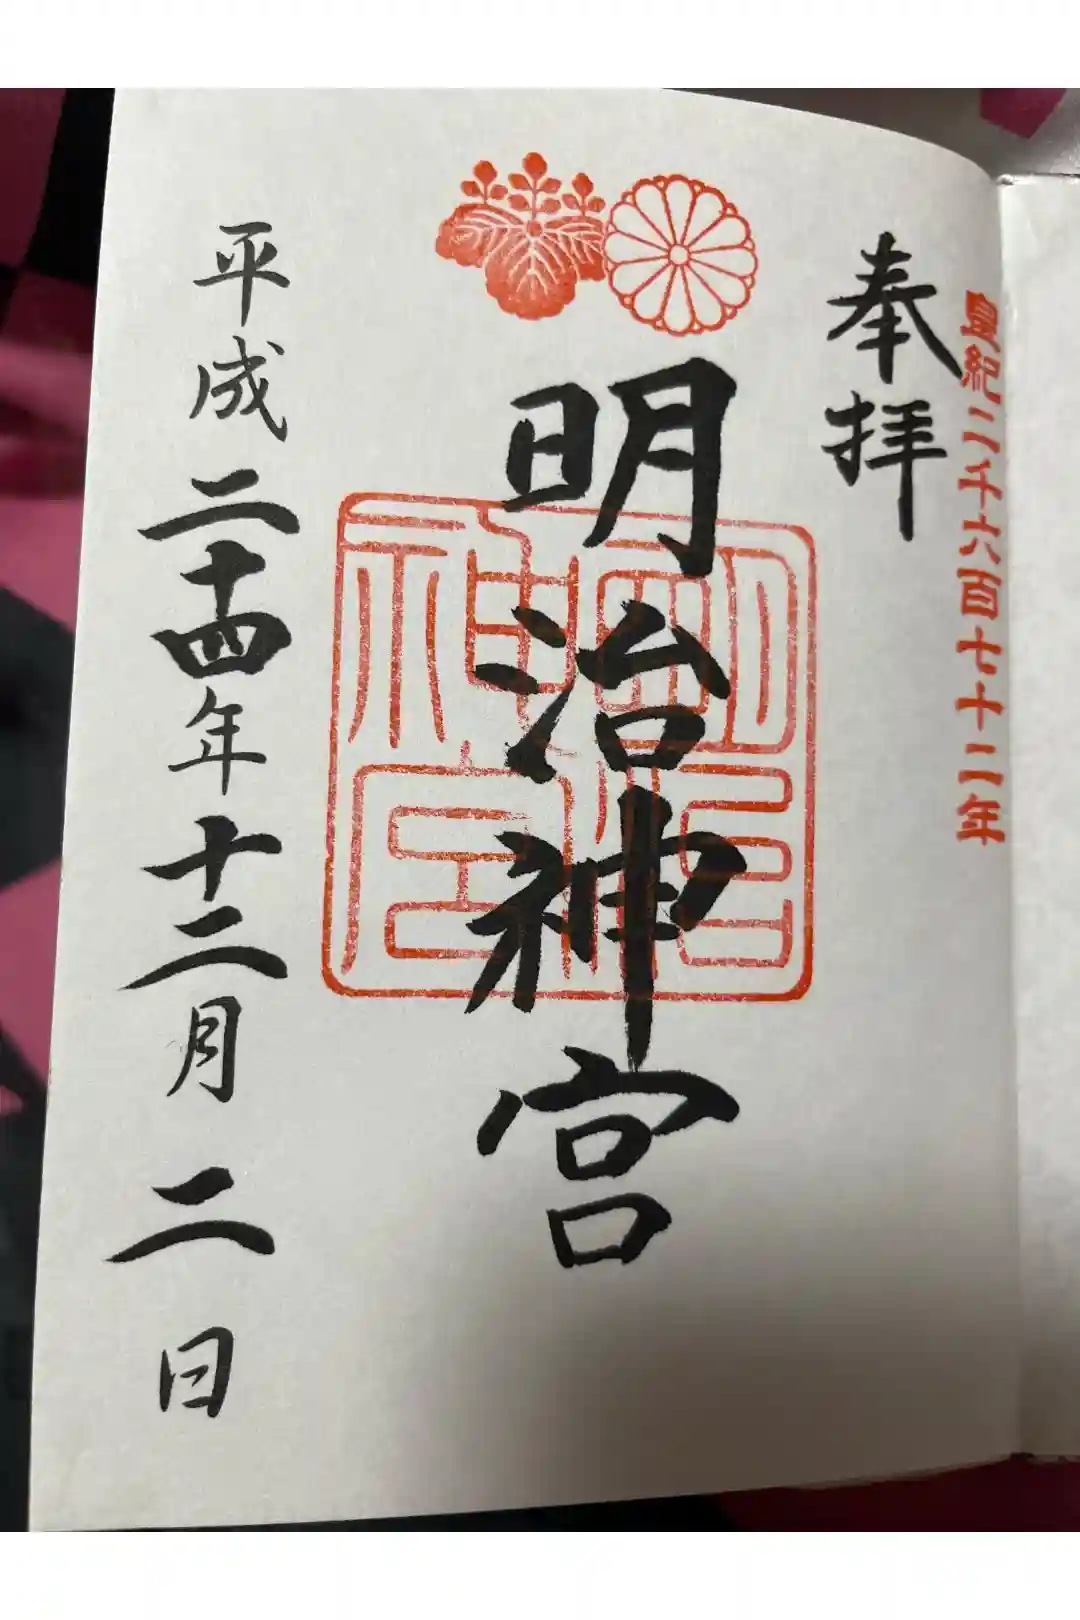 皇紀二千六百七十二年
奉拝
明治神宮
明治神宮
平成二十四年十二月二日